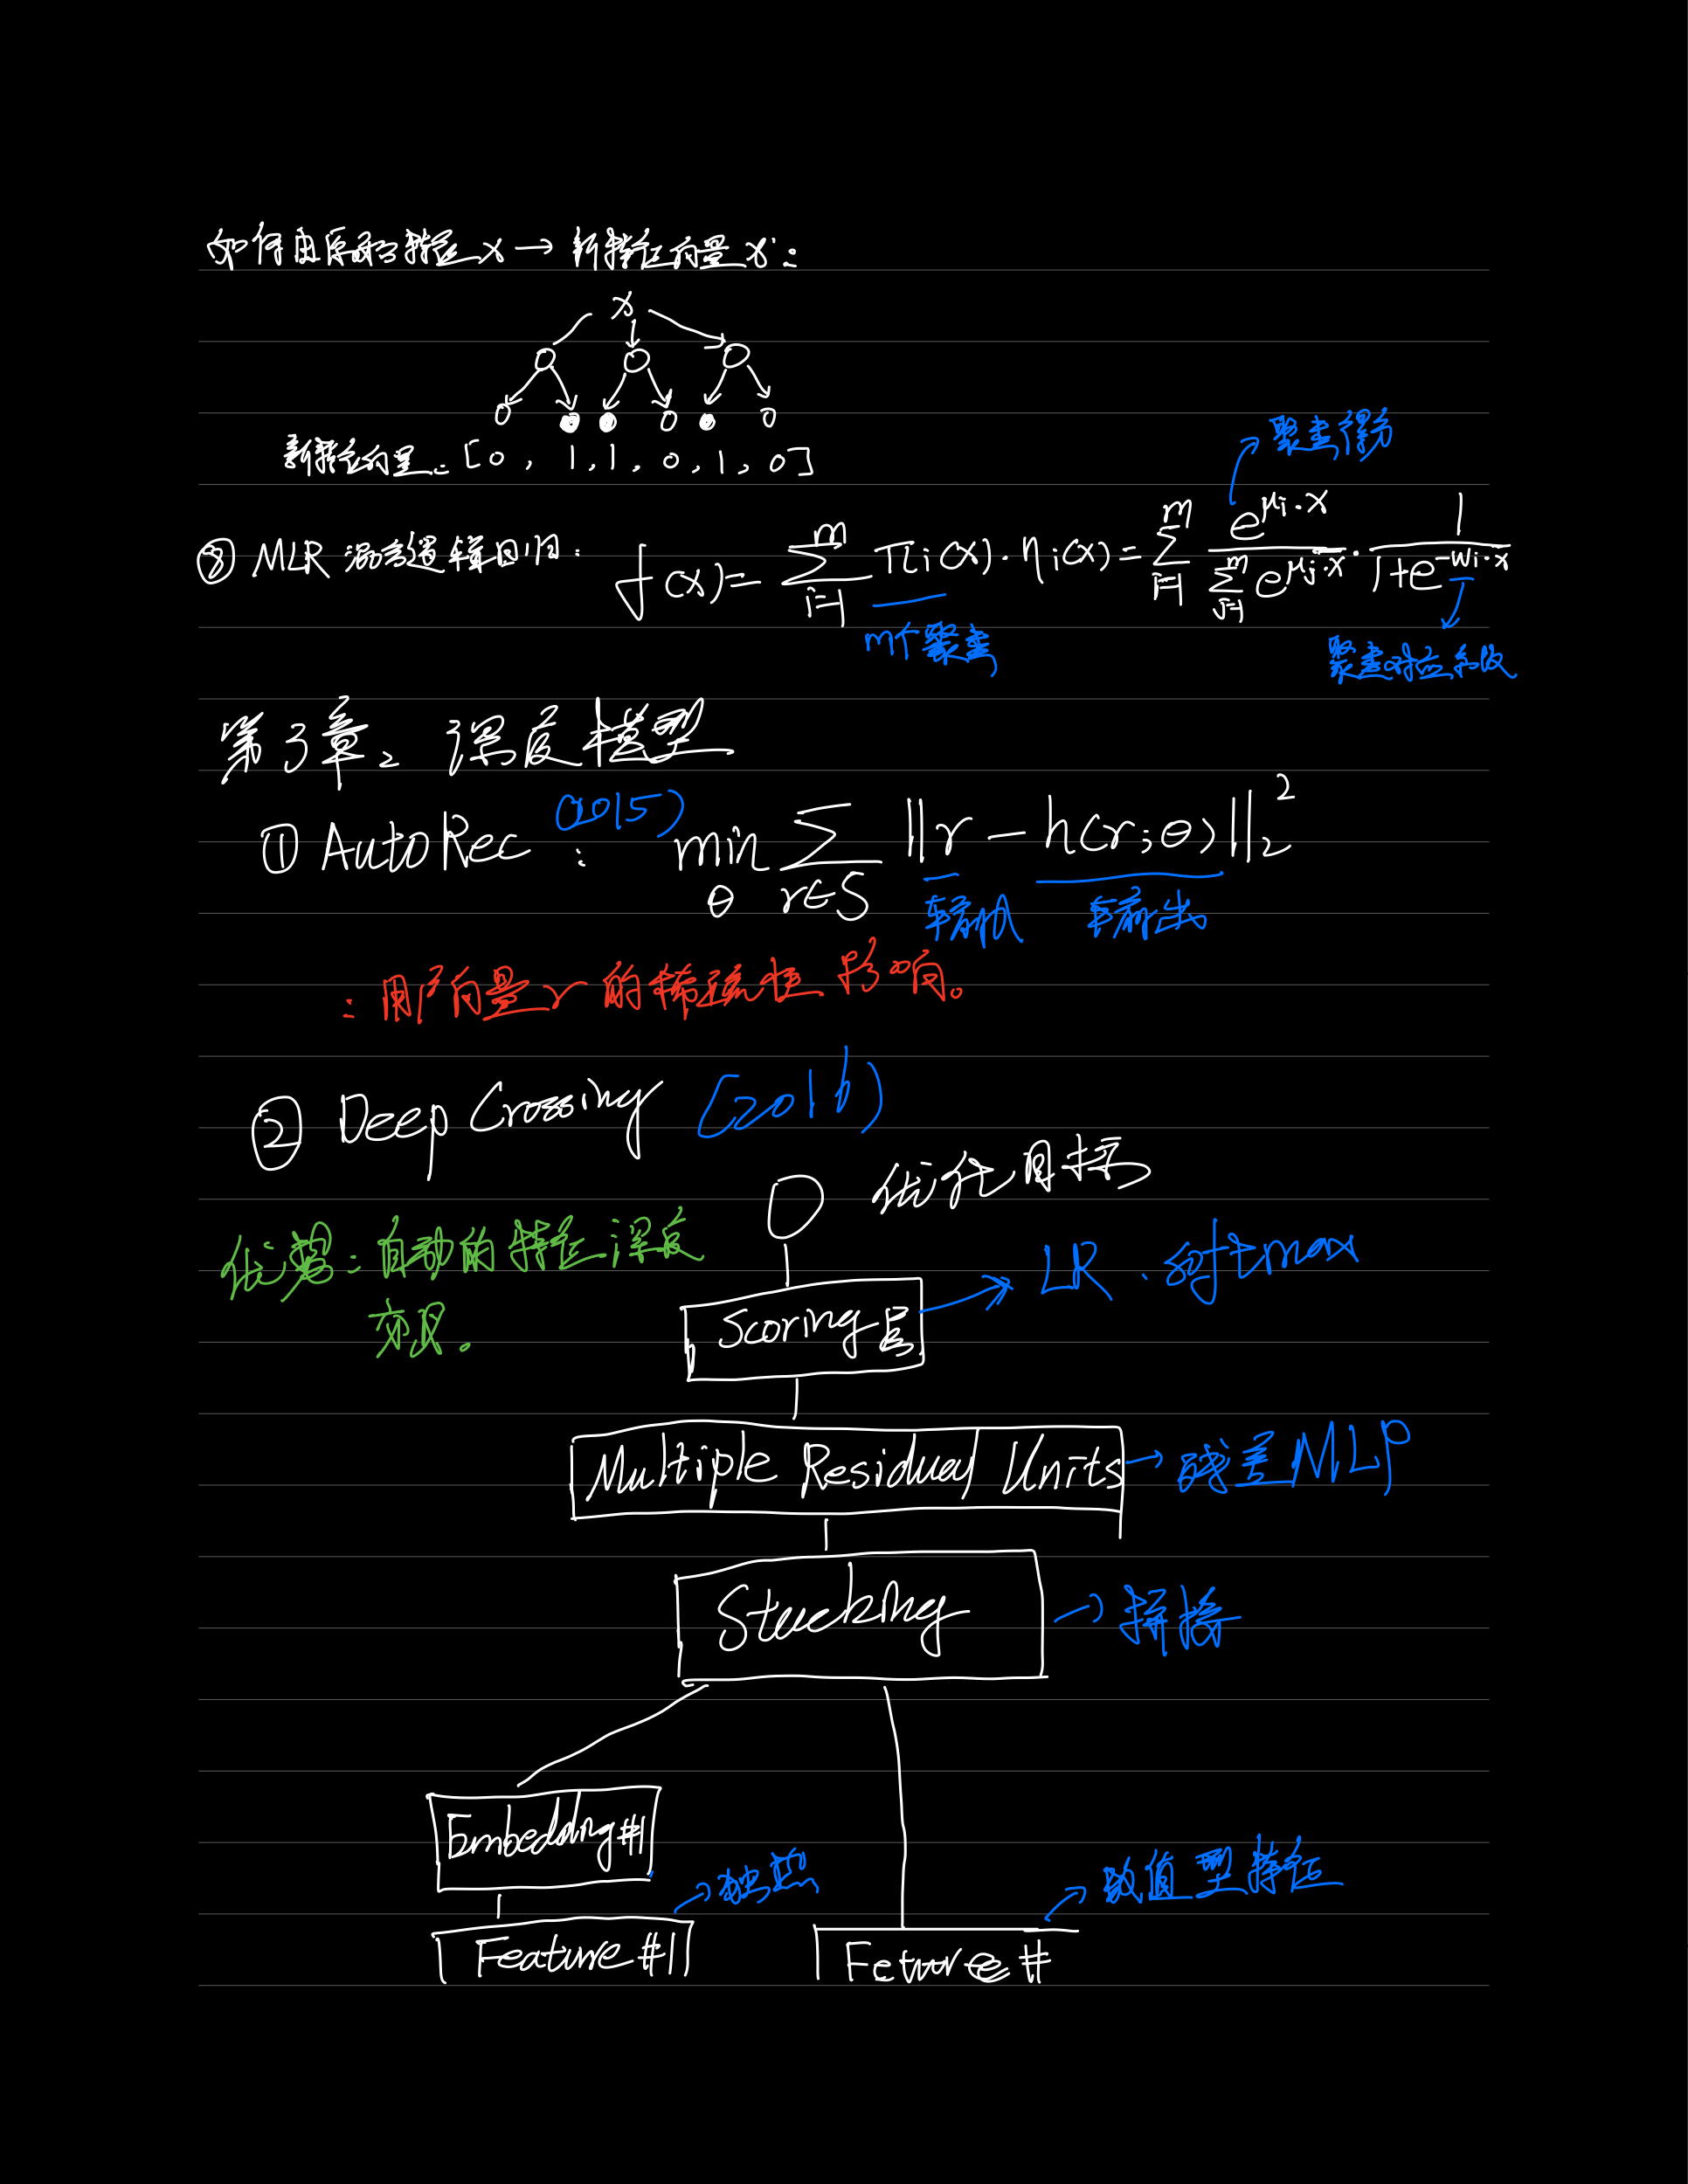 如何由原始特征 x → 新特征向量 x':
x
新特征向量: [0, 1, 1, 0, 1, 0]
聚类得分
⑧ MLR 混合逻辑回归: f(x) = Σ_{i=1}^{m} π_i(x)·η_i(x) = Σ_{i=1}^{m} e^{μ_i·x} / Σ_{j=1}^{m} e^{μ_j·x} · 1 / 1+e^{-w_i·x}
m个聚类
聚类对应
第3章. 深度模型
① AutoRec (2015): min_θ Σ_{r∈S} ||r - h(r;θ)||_2^2
输入 输出
: 用户向量 r 的稀疏性影响。
② Deep Crossing (2016)
优化目标
优势: 自动的特征深度
交叉。
Scoring层 → LR. softmax
Multiple Residual Units → 残差MLP
Stacking → 拼接
Embedding#1
→ 独热
→ 数值型特征
Feature #1
Feture #